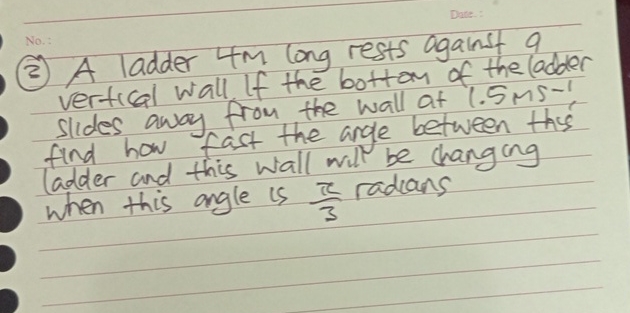 Date.:
No.:
② A ladder 4M long rests against a
vertical wall If the bottom of the ladder
slides away from the wall at 1.5 MS-1,
find how fast the angle between this
ladder and this wall will be changing
when this angle is π/3 radians